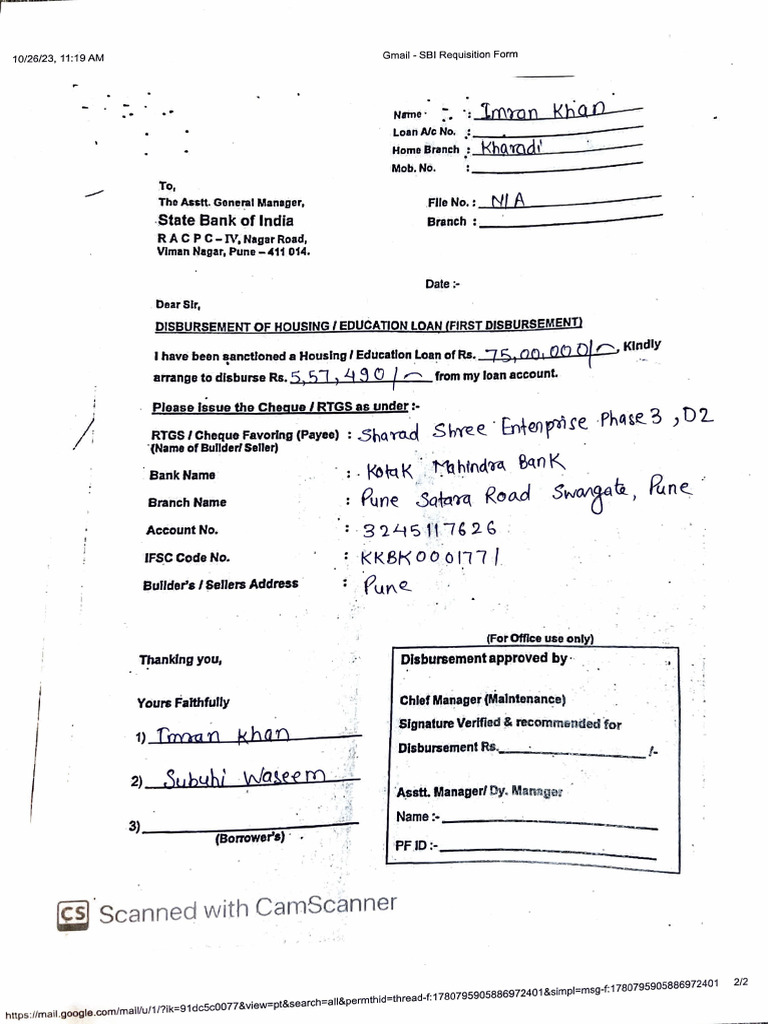 10/26/23, 11:19 AM Gmail - SBI Requisition Form
Name : Imran Khan
Loan A/c No. :
Home Branch : Kharadi
Mob. No. :
To,
The Asstt. General Manager,
State Bank of India
R A C P C – IV, Nagar Road,
Viman Nagar, Pune – 411 014.
File No. : N/A
Branch :
Date :-
Dear Sir,
DISBURSEMENT OF HOUSING / EDUCATION LOAN (FIRST DISBURSEMENT)
I have been sanctioned a Housing / Education Loan of Rs. 75,00,000/-, Kindly
arrange to disburse Rs. 5,57,490/- from my loan account.
Please Issue the Cheque / RTGS as under :-
RTGS / Cheque Favoring (Payee) : Sharad Shree Enterprise Phase 3, D2
(Name of Builder/ Seller)
Bank Name : Kotak Mahindra Bank
Branch Name : Pune Satara Road Swargate, Pune
Account No. : 3245117626
IFSC Code No. : KKBK0001771
Builder's / Sellers Address : Pune
(For Office use only)
Thanking you,
Yours Faithfully
1) Imran Khan
2) Subuhi Waseem
3)
(Borrower's)
Disbursement approved by
Chief Manager (Maintenance)
Signature Verified & recommended for
Disbursement Rs. /-
Asstt. Manager/ Dy. Manager
Name :-
PF ID :-
CS Scanned with CamScanner
https://mail.google.com/mail/u/1/?ik=91dc5c0077&view=pt&search=all&permthid=thread-f:1780795905886972401&simpl=msg-f:1780795905886972401 2/2